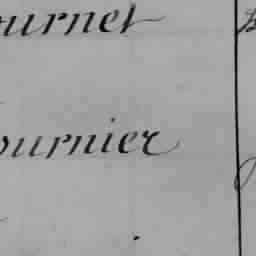 ournet
ournier